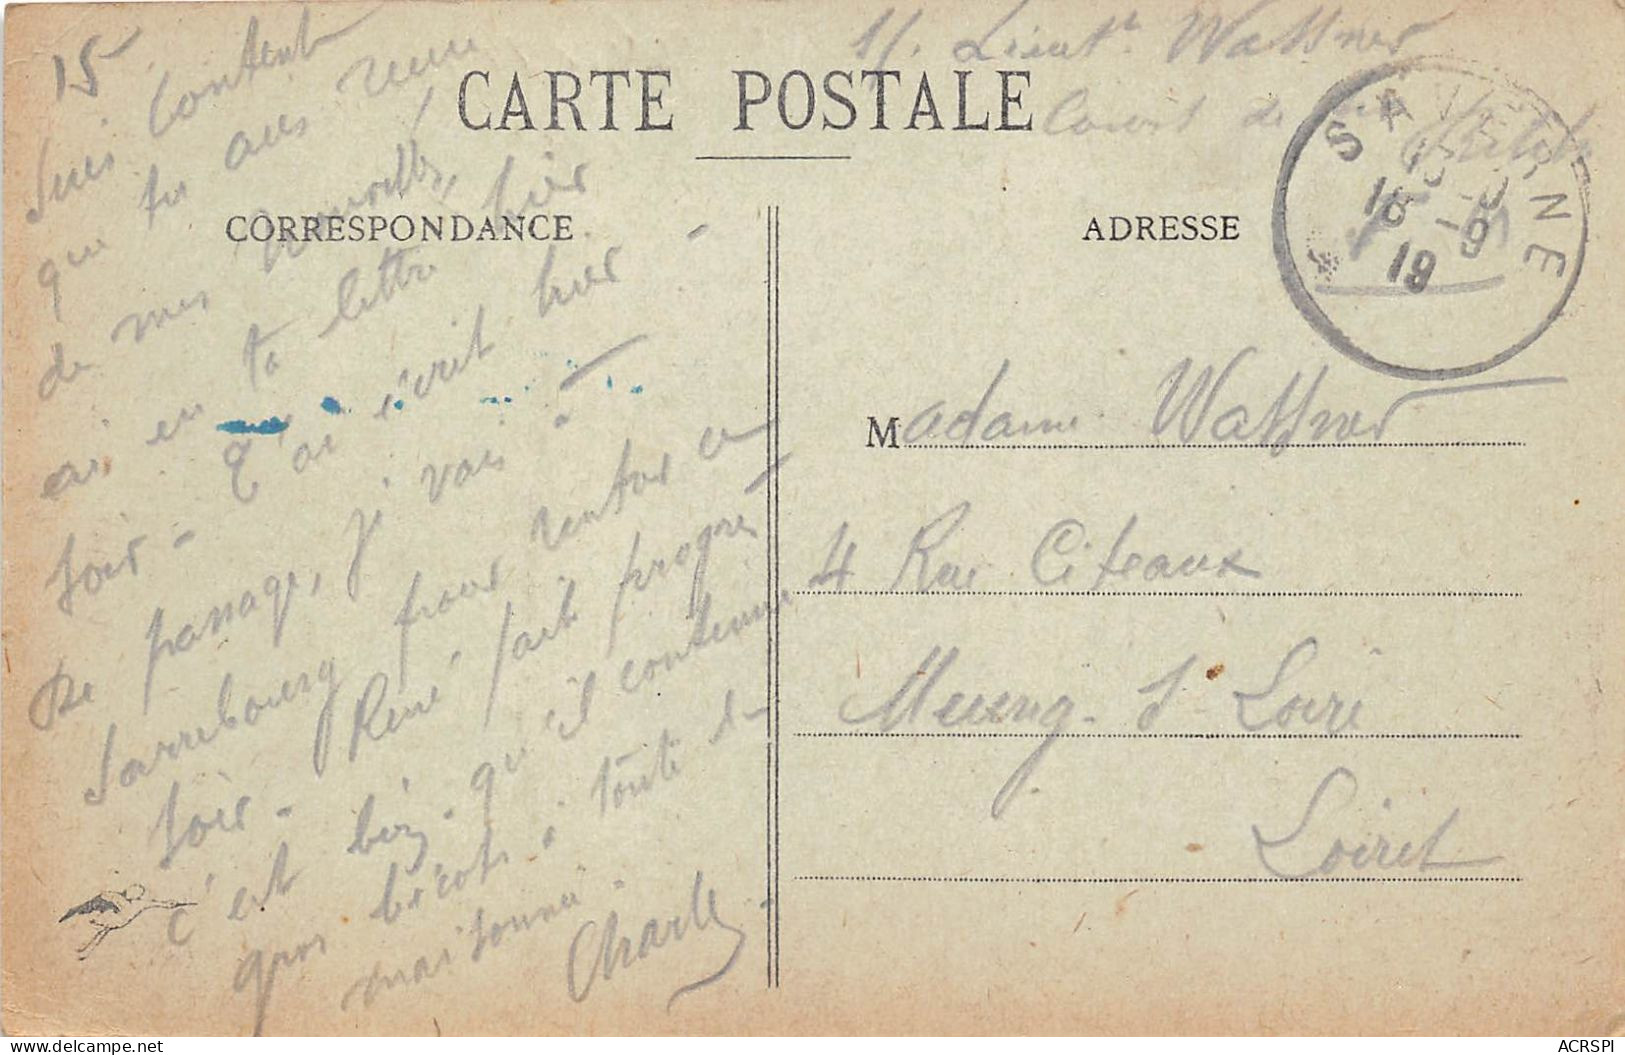 S/. Lieut. Wassner
Cours de
CARTE POSTALE
CORRESPONDANCE
ADRESSE
SAVERNE
16 - 9
19
15
Suis content
que tu aies reçu
de mes nouvelles,
ai eu ta lettre hier
soir - t'ai écrit hier -
De passage, j'y vais
Sarrebourg pour rentrer ce
soir - René fait progrès
c'est bien - qu'il continue
gros bécots à toute la
maisonnée -
Charles
Madame Wassner
4 Rue Citeaux
Meung - S - Loire
Loiret
ACRSPI